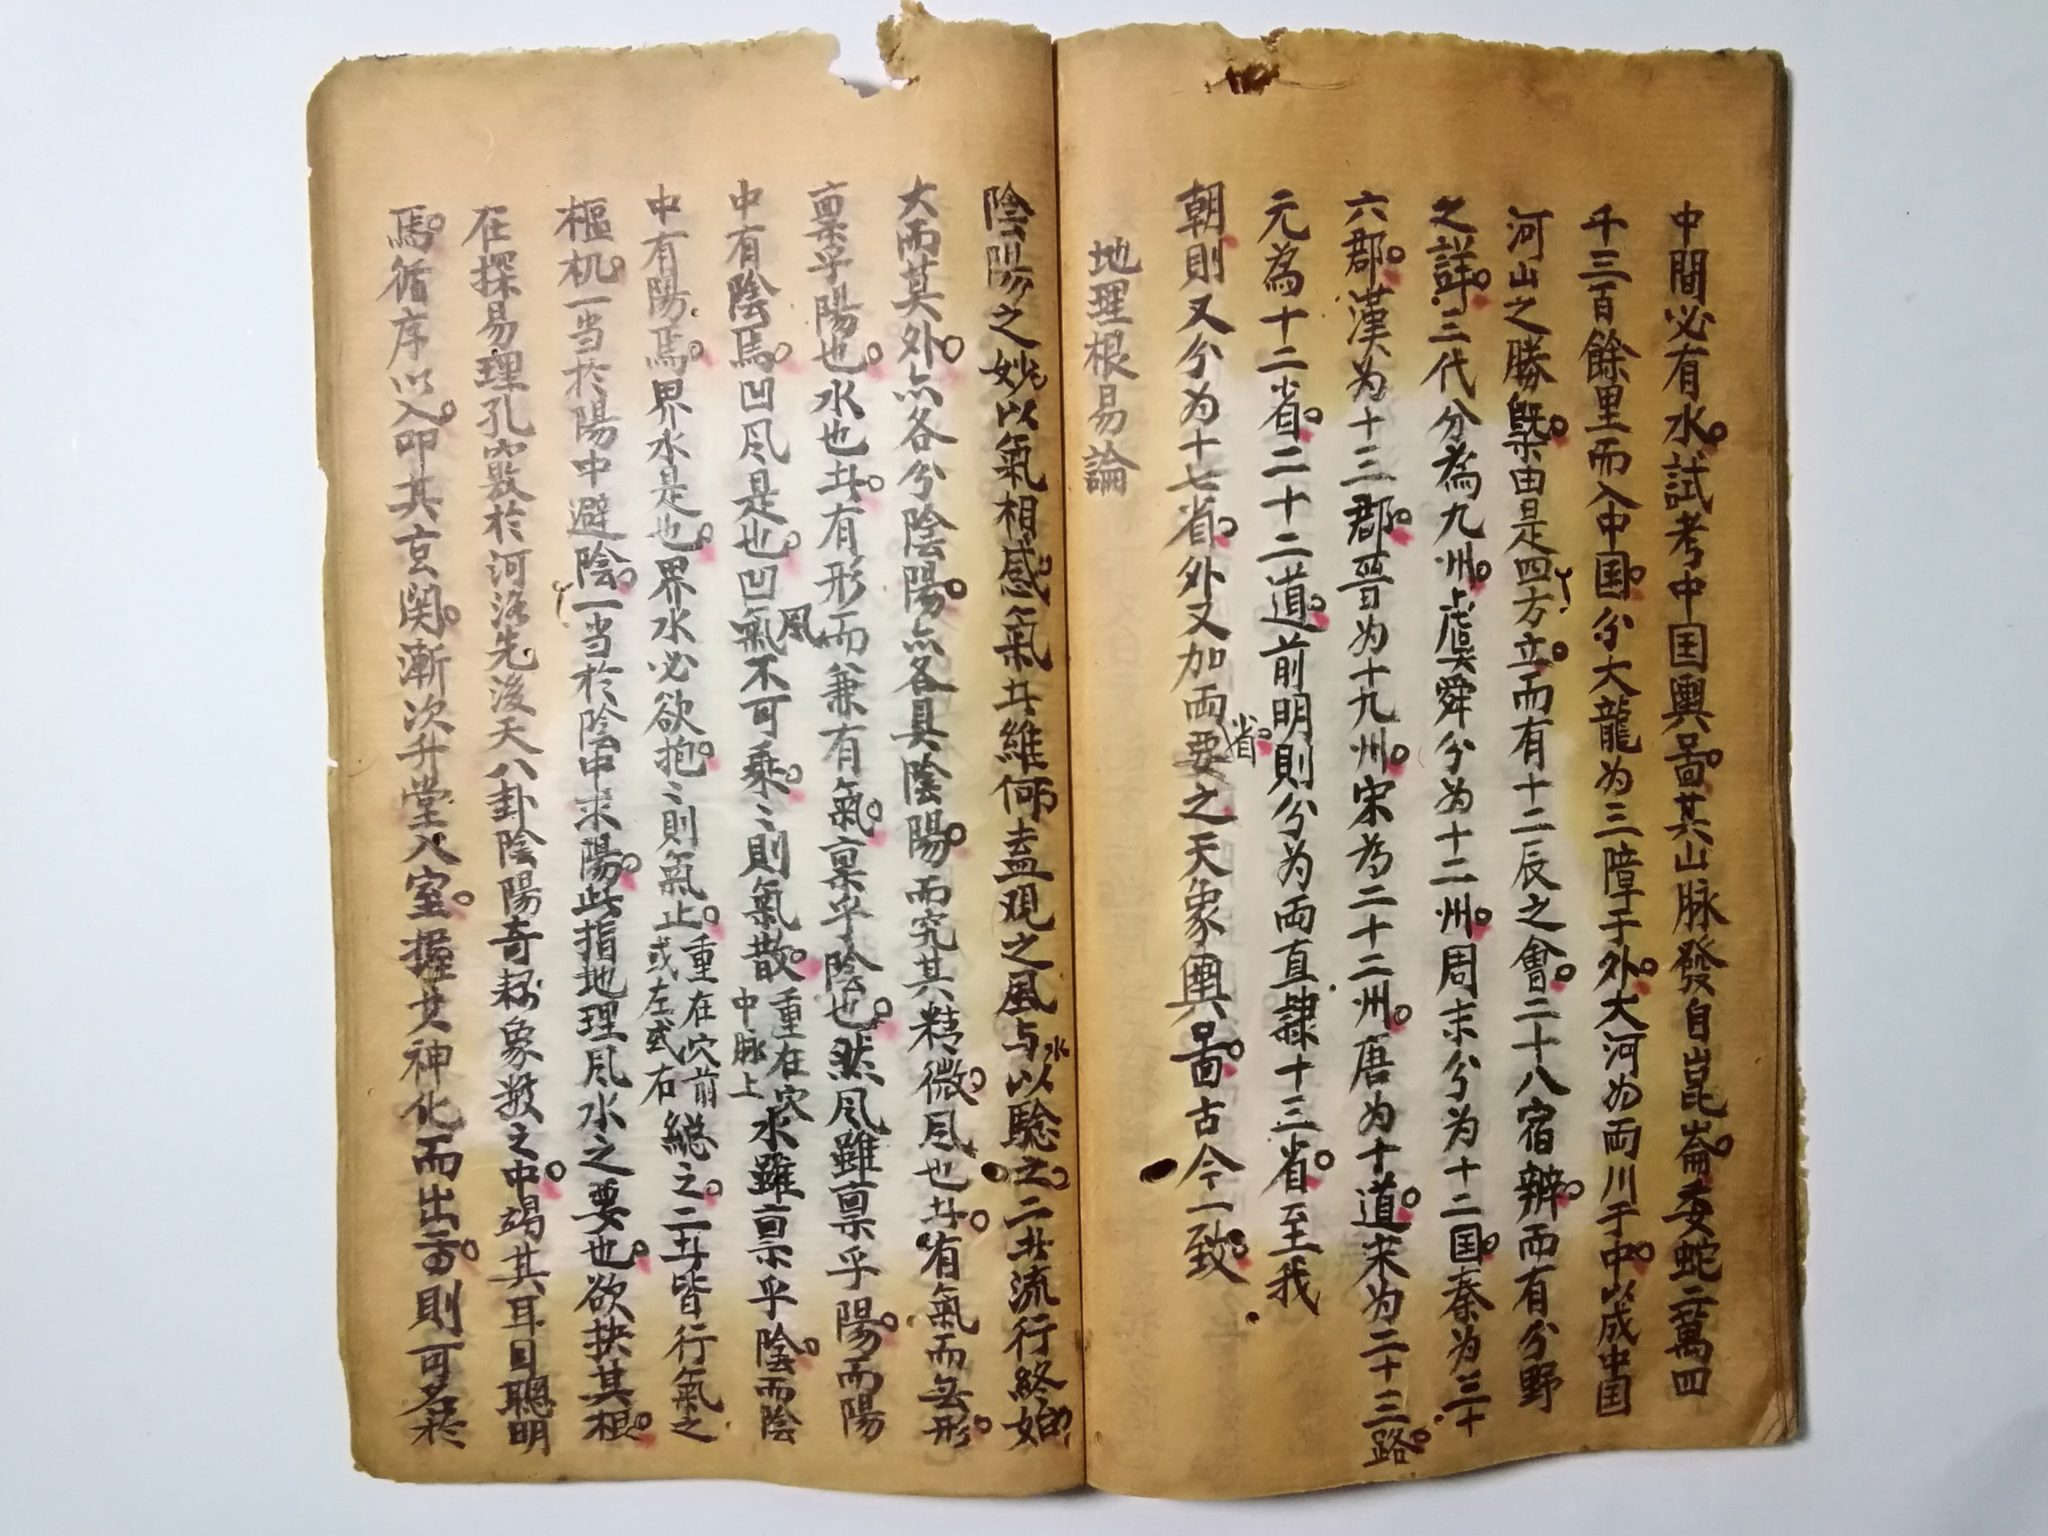 中間必有水。試考中国輿啚。其山脉發自崑崙。委蛇二萬四
千三百餘里而入中国。分大龍为三障于外。大河为両川于中。以成中国
河山之勝槩。由是四方立。而有十二辰之會。二十八宿辨。而有分野
之詳。三代分為九州。虞舜分为十二州。周末分为十二国。秦为三十
六郡。漢为十三郡。晉为十九州。宋為二十二州。唐为十道。宋为二十三路。
元為十二省。二十二道。前明則分为両直隸十三省。至我
朝則又分为十七省。外又加両省。要之天象輿啚。古今一致。
地理根易論
陰陽之妙。以氣相感。氣共維何。盍观之風与水以驗之。二共流行終始。
大而其外。点各分陰陽。点各具陰陽。而究其精微。风也共。有氣而無形。
禀乎陽也。水也共。有形而兼有氣。禀乎陰也。然风雖禀乎陽。而陽
中有陰焉。凹风是也。凹風氣不可乘。乘則氣散。重在穴中脉上水雖禀乎陰。而陰
中有陽焉。界水是也。界水必欲抱。抱則氣止。重在穴前或左或右總之。二共皆行氣之
樞机。一当於陽中避陰。一当於陰中求陽。此指地理风水之要也。欲抉其根。
在探易理孔竅於河洛先後天八卦陰陽奇耦象数之中。竭其耳目聰明
焉。循序以入。叩其玄関。漸次升堂入室。握其神化而出